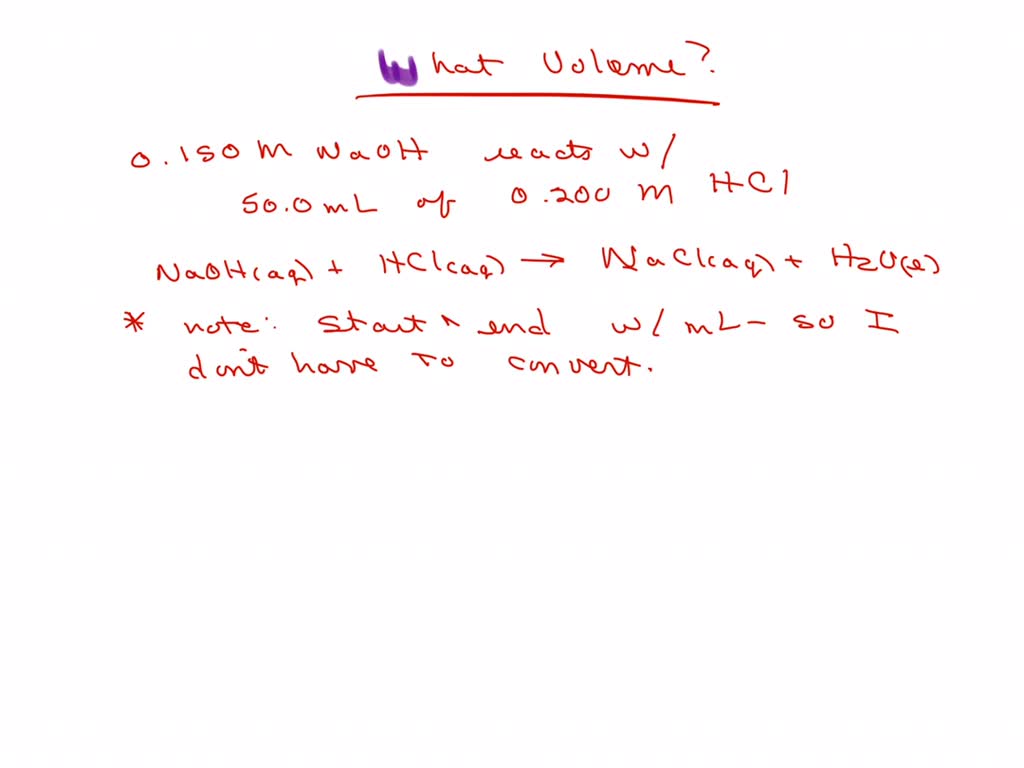 What Volume?
0.150 M NaOH reacts w/
50.0 mL of 0.200 M HCl
NaOH(aq) + HCl(aq) → NaCl(aq) + H2O(l)
* note: Start ^ end w/ mL - so I
don't have to convert.